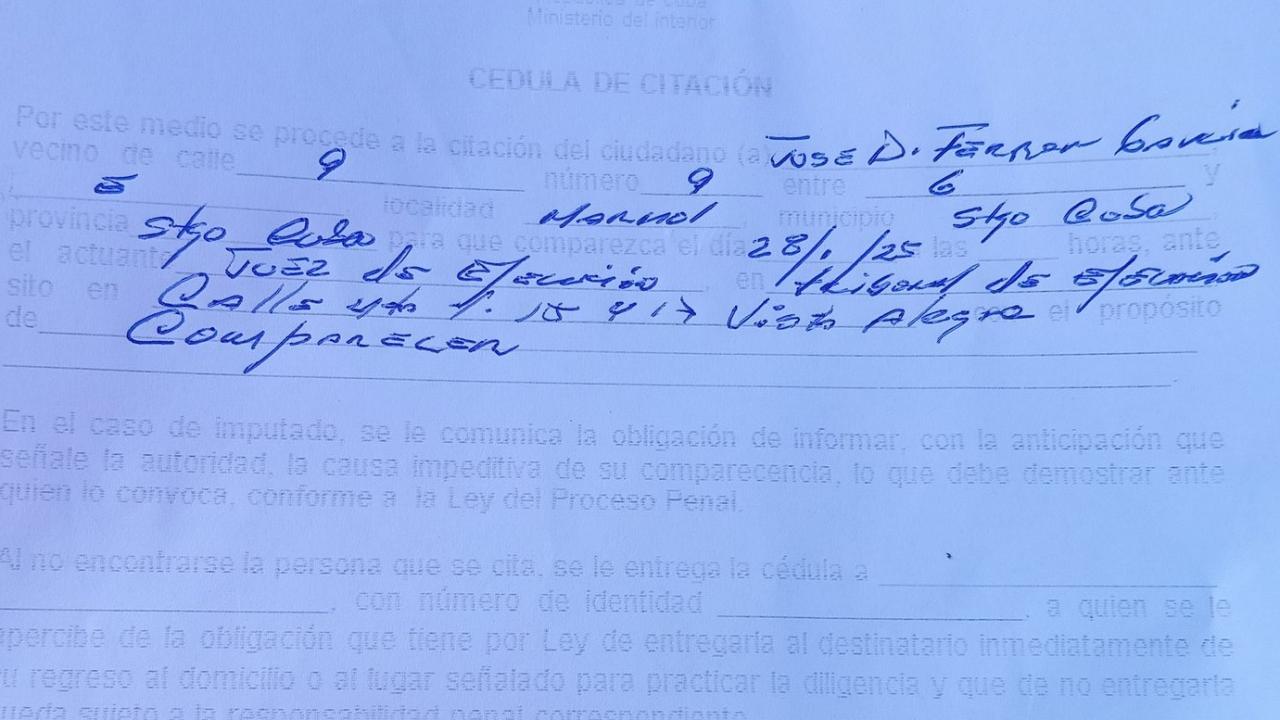 República de Cuba
Ministerio del Interior
CEDULA DE CITACIÓN
Por este medio se procede a la citación del ciudadano (a) Jose D. Ferrer Garcia
vecino de calle 9 número 9 entre 6 y
5 localidad Marmol, municipio Stgo Cuba,
provincia Stgo Cuba para que comparezca el día 28/1/25 las horas, ante
el actuante Juez de Ejecución, en tribunal de Ejecución
sito en Calle 4ta 15 y 17 Vista Alegre el propósito
de Comparecer
En el caso de imputado, se le comunica la obligación de informar, con la anticipación que
señale la autoridad, la causa impeditiva de su comparecencia, lo que debe demostrar ante
quien lo convoca, conforme a la Ley del Proceso Penal.
Al no encontrarse la persona que se cita, se le entrega la cédula a
, con número de identidad , a quien se le
apercibe de la obligación que tiene por Ley de entregarla al destinatario inmediatamente de
su regreso al domicilio o al lugar señalado para practicar la diligencia y que de no entregarla
queda sujeto a la responsabilidad penal correspondiente.